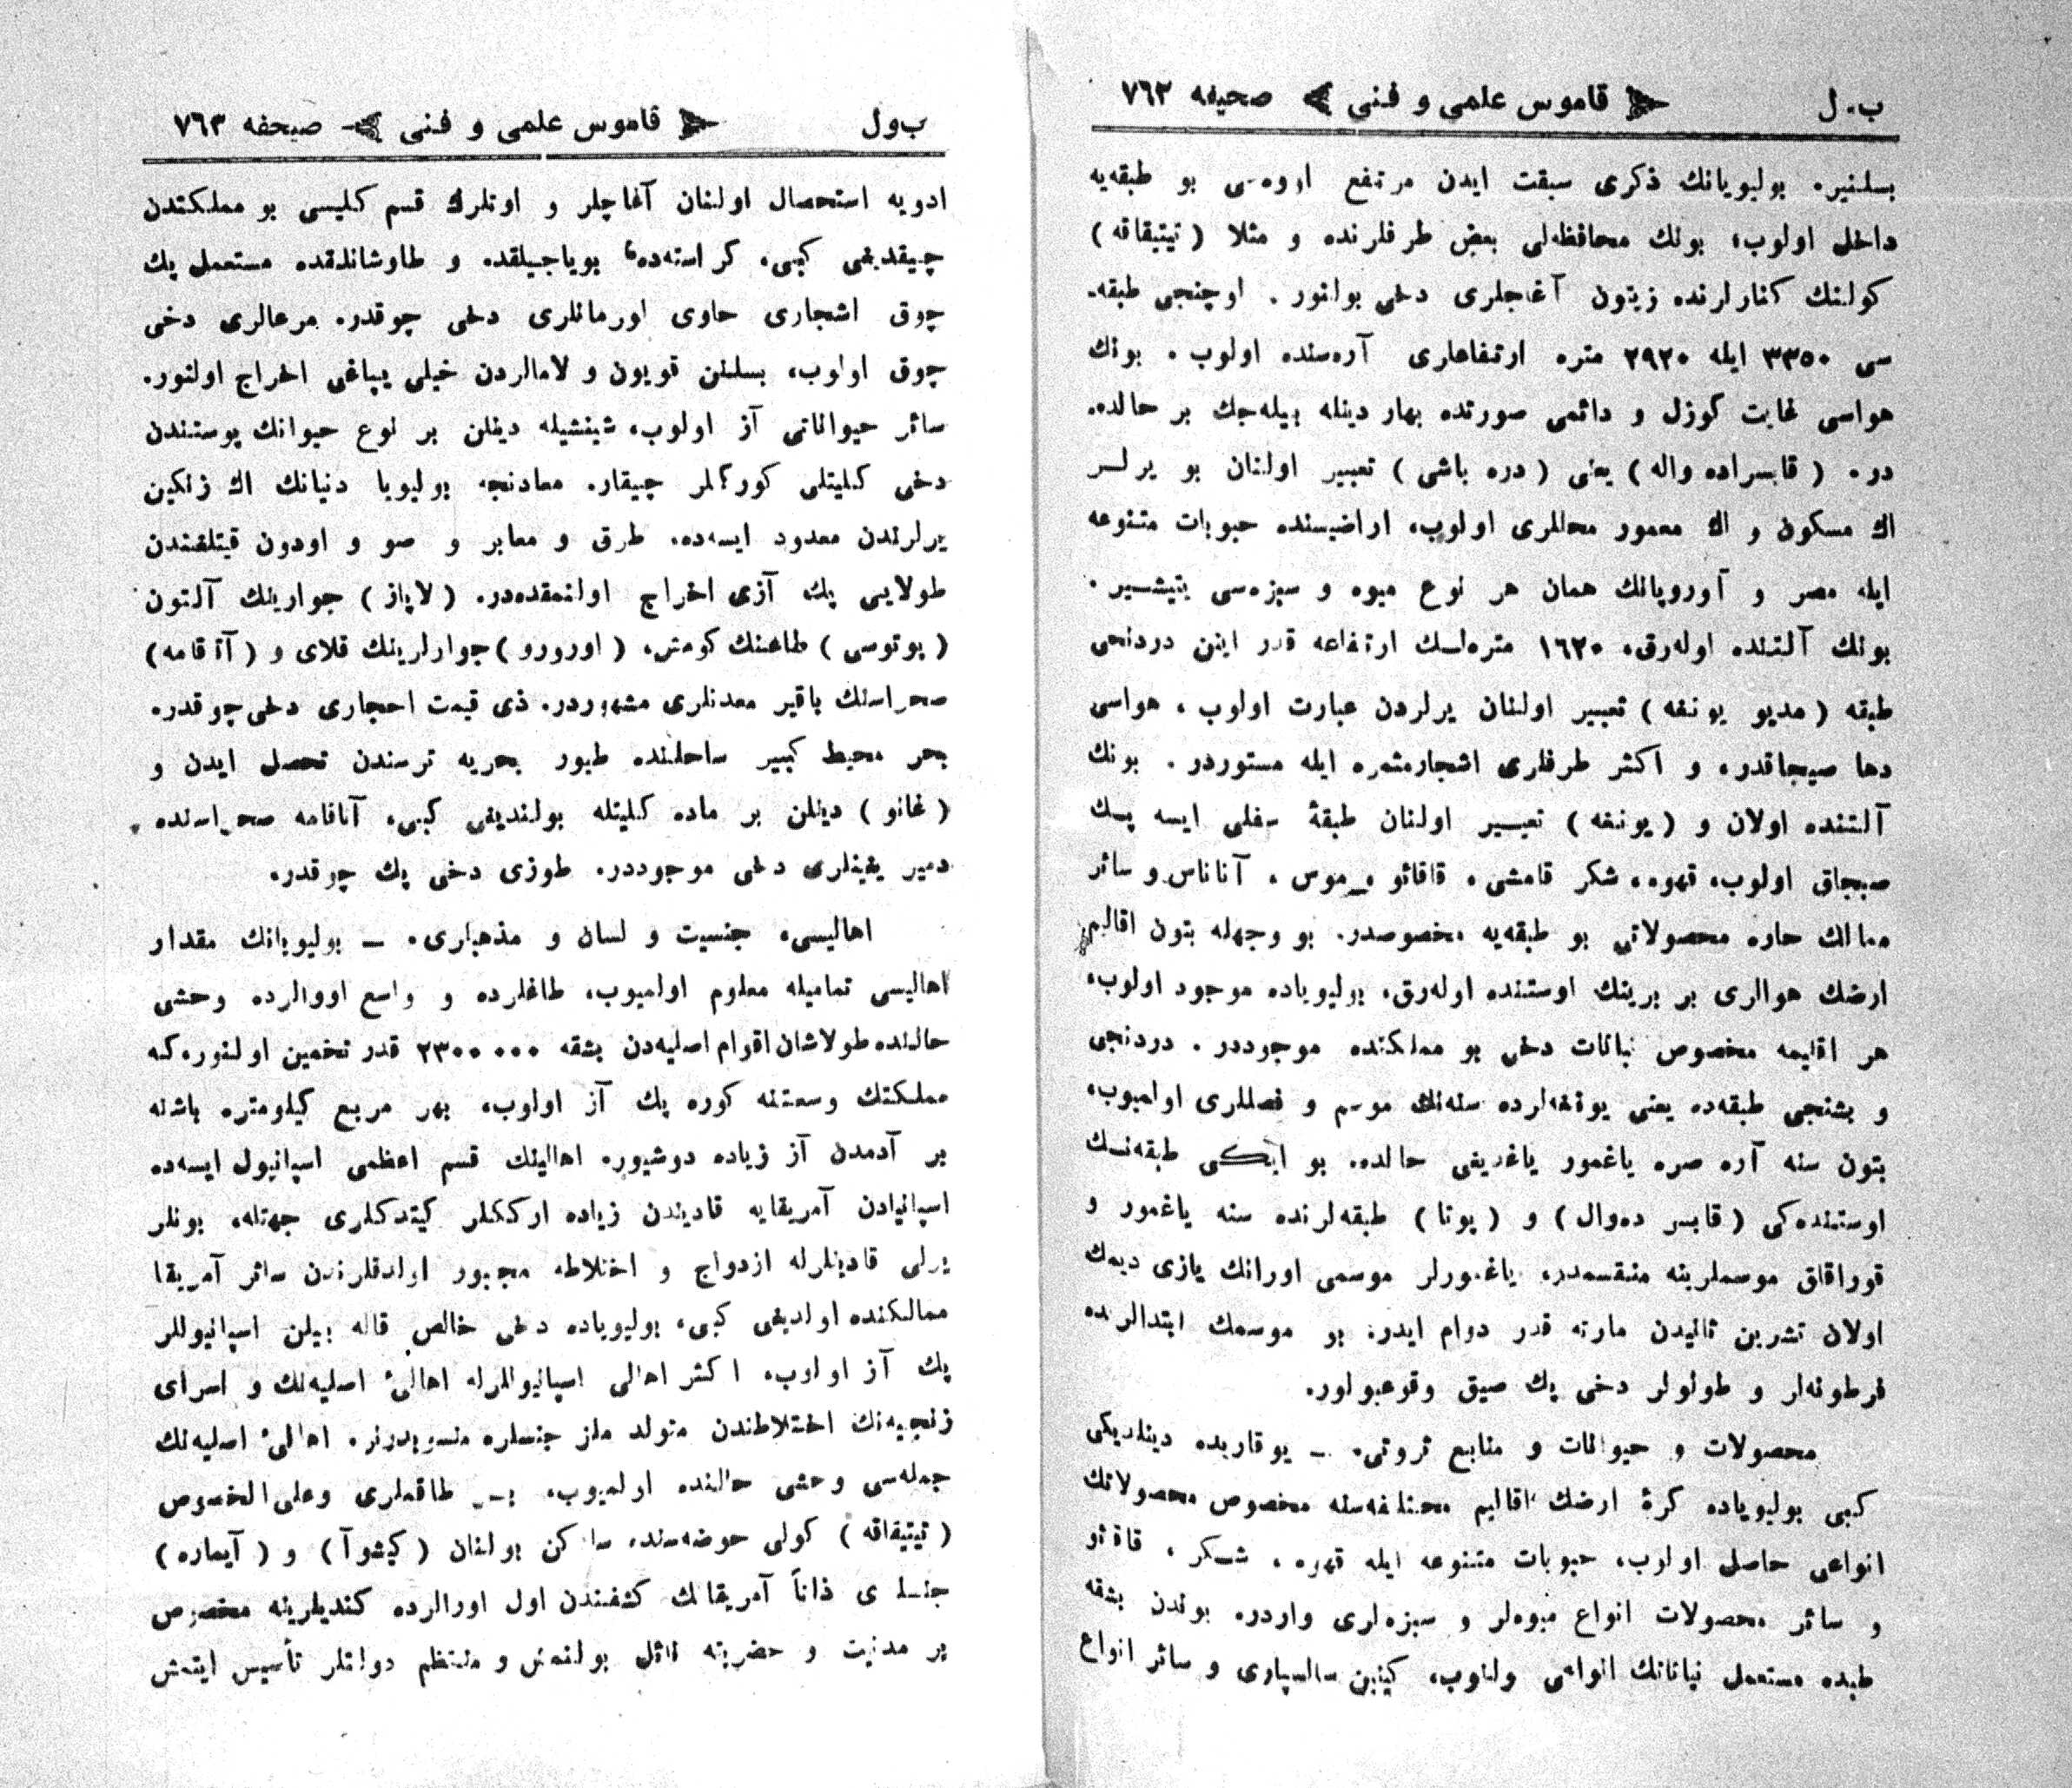 ب.ل قاموس علمى و فنى صحيفه ٧٦٢
بسلنير. بوليويانك ذكرى سبقت ايدن مرتفع اووه‌سى بو طبقه‌يه
داخل اولوب، بونك محافظه‌لى بعض طرفلرنده و مثلا (تيتيقاقه)
كولنك كنارلرنده زيتون آغاجلرى دخى بولنور. اوچنجى طبقه‌-
سى ٣٣٥٠ ايله ٢٩٢٠ متره ارتفاعلرى آره‌سنده اولوب، بونك
هواسى غايت كوزل و دائمى صورتده بهار دينله بيله‌جك بر حالده‌
در. (قابسراده واله) يعنى (دره باشى) تعبير اولنان بو يرلر
اك مسكون و اك معمور محللرى اولوب، اراضيسنده حبوبات متنوعه
ايله مصر و آوروپانك همان هر نوع ميوه و سبزه‌سى يتيشير.
بونك آلتنده اوله‌رق، ١٦٢٠ متره‌لك ارتفاعه قدر اينن دردنجى
طبقه (مديو يونغه) تعبير اولنان يرلردن عبارت اولوب، هواسى
دها صيجاقدر، و اكثر طرفلرى اشجارمثمره ايله مستوردر. بونك
آلتنده اولان و (يونغه) تعبير اولنان طبقهٔ سفلى ايسه پك
صيجاق اولوب، قهوه، شكر قامشى، قاقائو، موس، آناناس و سائر
ممالك حاره محصولاتى بو طبقه‌يه مخصوصدر. بو وجهله بتون اقاليم
ارضك هوالرى بر برينك اوستنده اوله‌رق، بوليوياده موجود اولوب،
هر اقليمه مخصوص نباتات دخى بو مملكتده موجوددر. دردنجى
و بشنجى طبقه‌ده يعنى يونغه‌لرده سنه‌نك موسم و فصللرى اولميوب،
بتون سنه آره صره ياغمور ياغديغى حالده، بو ايكى طبقه‌نك
اوستنده‌كى (قابسر ده‌وال) و (پونا) طبقه‌لرنده سنه ياغمور و
قوراقلق موسملرينه منقسمدر، ياغمورلر موسمى اورانك يازى ديمك
اولان تشرين ثانيدن مارته قدر دوام ايدر. بو موسمك ابتدالرنده
فرطونه‌لر و طولولر دخى پك صيق وقوعبولور.
محصولات و حيوانات و منابع ثروتى. ــ يوقاريده دينلديكى
كبى بوليوياده كرهٔ ارضك اقاليم مختلفه‌سنه مخصوص محصولاتك
انواعى حاصل اولوب، حبوبات متنوعه ايله قهوه، شكر، قاقائو
و سائر محصولات انواع ميوه‌لر و سبزه‌لرى واردر. بوندن بشقه
طبده مستعمل نباتاتك انواعى ولنوب، كينين سالسپارى و سائر انواع
ب‌ول قاموس علمى و فنى صحيفه ٧٦٣
ادويه استحصال اولنان آغاچلر و اوتلرك قسم كليسى بو مملكتدن
چيقديغى كبى، كراسته‌ده، بوياجيلقده و طاوشانلقده مستعمل پك
چوق اشجارى حاوى اورمانلرى دخى چوقدر. مرعالرى دخى
چوق اولوب، بسلنن قويون و لامالردن خيلى يپاغى اخراج اولنور.
سائر حيواناتى آز اولوب، شينشيله دينلن بر نوع حيوانك پوستندن
دخى كليتلى كوركلر چيقار. معادنجه بوليويا دنيانك اك زنكين
يرلرندن معدود ايسه‌ده، طرق و معابر و صو و اودون قيتلغندن
طولايى پك آزى اخراج اولنمقده‌در. (لاپاز) جوارينك آلتون
(پوتوسى) طاغنك كومش، (اورورو) جوارلرينك قلاى و (آتاقامه)
صحراسنك باقير معدنلرى مشهوردر. ذى قيمت احجارى دخى چوقدر.
بحر محيط كبير ساحلنده طيور بحريه ترسندن تحصل ايدن و
(غانو) دينلن بر ماده كليتله بولنديغى كبى، آتاقامه صحراسنده
دمير يغينلرى دخى موجوددر. طوزى دخى پك چوقدر.
اهاليسى، جنسيت و لسان و مذهبلرى. ــ بوليويانك مقدار
اهاليسى تماميله معلوم اولميوب، طاغلرده و واسع اووالرده وحشى
حالنده طولاشان اقوام اصليه‌دن بشقه ٢٣٠٠٠٠٠ قدر تخمين اولنوركه
مملكتك وسعتنه كوره پك آز اولوب، بهر مربع كيلومتره باشنه
بر آدمدن آز زياده دوشيور. اهالينك قسم اعظمى اسپانيول ايسه‌ده
اسپانيادن آمريقايه قاديندن زياده اركلكلر كيتدكلرى جهتله، بونلر
يرلى قادينلرله ازدواج و اختلاطه مجبور اولدقلرندن سائر آمريقا
ممالكنده اولديغى كبى، بوليوياده دخى خالص قاله بيلن اسپانيوللر
پك آز اولوب، اكثر اهالى اسپانيوللرله اهالئ اصليه‌نك و اسراى
زنجيه‌نك اختلاطندن متولد ملز جنسلره منسوبدرلر. اهالئ اصليه‌نك
جمله‌سى وحشى حالنده اولميوب، بر طاقملرى وعلى الخصوص
(تيتيقاقه) كولى حوضه‌سنده ساكن بولنان (كيشوآ) و (آيماره)
جنسلرى ذاتاً آمريقانك كشفندن اول اورالرده كنديلرينه مخصوص
بر مدنيت و حضريته نائل بولنمش و منتظم دولتلر تأسيس ايتمش